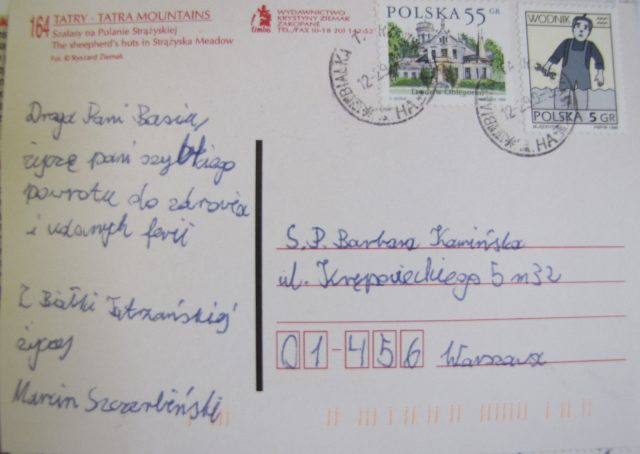 164 TATRY - TATRA MOUNTAINS
Szałasy na Polanie Strążyskiej
The sheepherd's huts in Strążyska Meadow
Fot. © Ryszard Ziemak
limba
WYDAWNICTWO
KRYSTYNY ZIEMAK
ZAKOPANE
TEL./FAX (0-18 20) 142-52
POLSKA 55 GR
WODNIK
POLSKA 5 GR
Droga Pani Basiu,
życzę pani szybkiego
powrotu do zdrowia
i udanych ferii
Z Białki Tatrzańskiej
życzy
Marcin Szczerbiński
S.P. Barbara Kamińska
ul. Krępowieckiego 5 m32
01-456 Warszawa